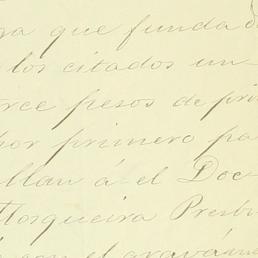 ra que funda d
los citados un
rce pesos de pri
por primero pa
llan á el Doc
Mosqueira Presbi
con el graváme